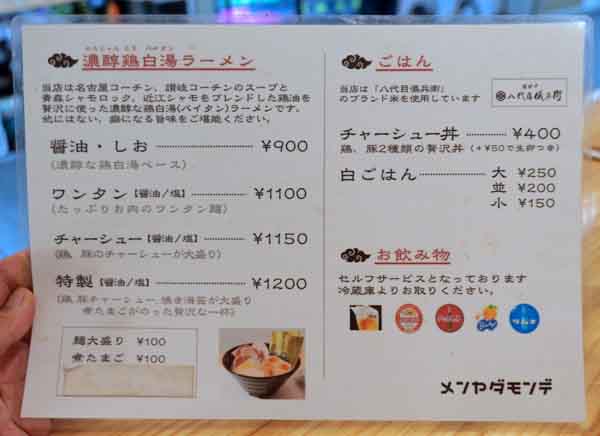 のうじゅん とり パイタン
濃醇鶏白湯ラーメン
当店は名古屋コーチン、讃岐コーチンのスープと
青森シャモロック、近江シャモをブレンドした鶏油を
贅沢に使った濃醇な鶏白湯(パイタン)ラーメンです。
他にはない、癖になる旨味をご堪能ください。
醤油・しお ¥900
(濃醇な鶏白湯ベース)
ワンタン【醤油/塩】 ¥1100
(たっぷりお肉のワンタン麺)
チャーシュー【醤油/塩】 ¥1150
(鶏、豚のチャーシューが大盛り)
特製【醤油/塩】 ¥1200
(鶏、豚チャーシュー、焼き海苔が大盛り
煮たまごがのった贅沢な一杯)
麺大盛り ¥100
煮たまご ¥100
ごはん
当店は「八代目儀兵衛」
のブランド米を使用しています
八代目儀兵衛
チャーシュー丼 ¥400
鶏、豚2種類の贅沢丼 (+¥50で生卵つき)
白ごはん 大 ¥250
並 ¥200
小 ¥150
お飲み物
セルフサービスとなっております
冷蔵庫よりお取りください。
メンヤダモンデ